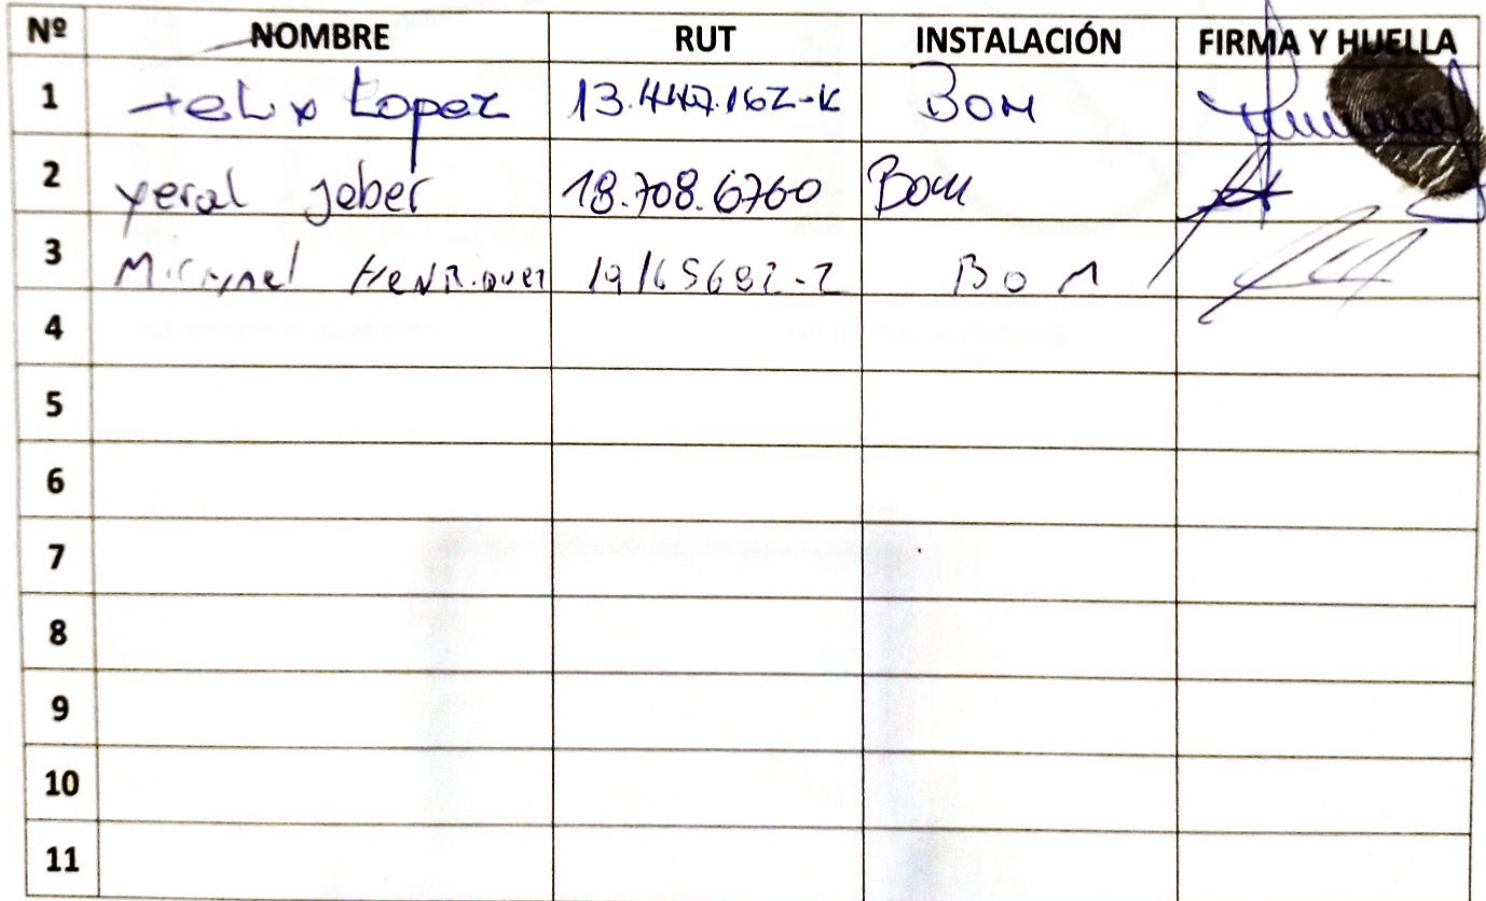 Nº NOMBRE RUT INSTALACIÓN FIRMA Y HUELLA
1 Felix Lopez 13.447.162-K BOM
2 yeral jeber 18.708.6760 Bom
3 Michael HeNRiquez 19165682-2 BOM
4
5
6
7
8
9
10
11